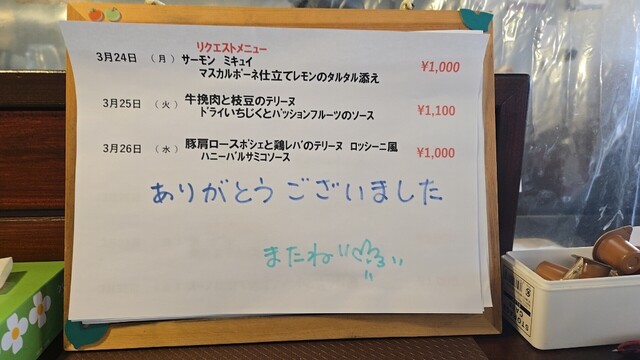 リクエストメニュー
3月24日 （月） サーモン ミキュイ ¥1,000
マスカルポーネ仕立てレモンのタルタル添え
3月25日 （火） 牛挽肉と枝豆のテリーヌ ¥1,100
ドライいちじくとパッションフルーツのソース
3月26日 （水） 豚肩ロースポシェと鶏レバのテリーヌ ロッシーニ風 ¥1,000
ハニーバルサミコソース
ありがとうございました
またね